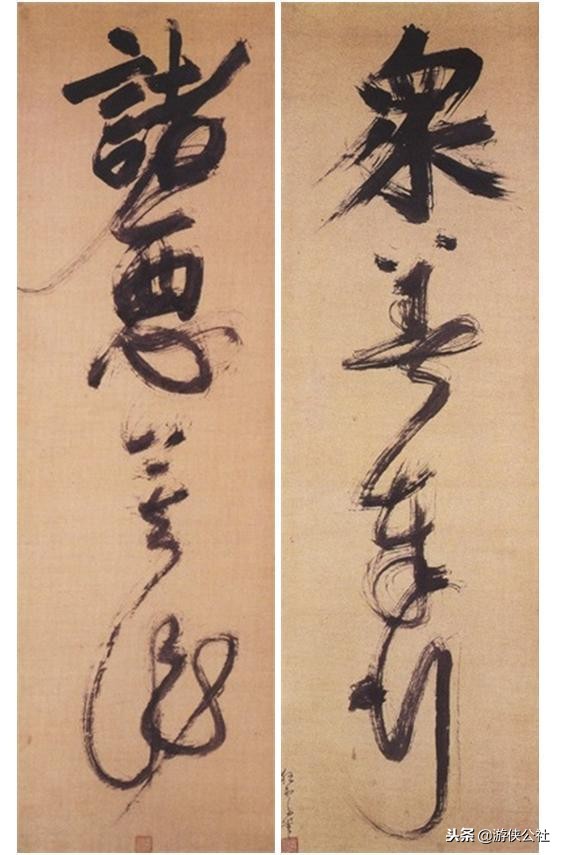 諸悪莫作
衆善奉行
头条 @游侠公社